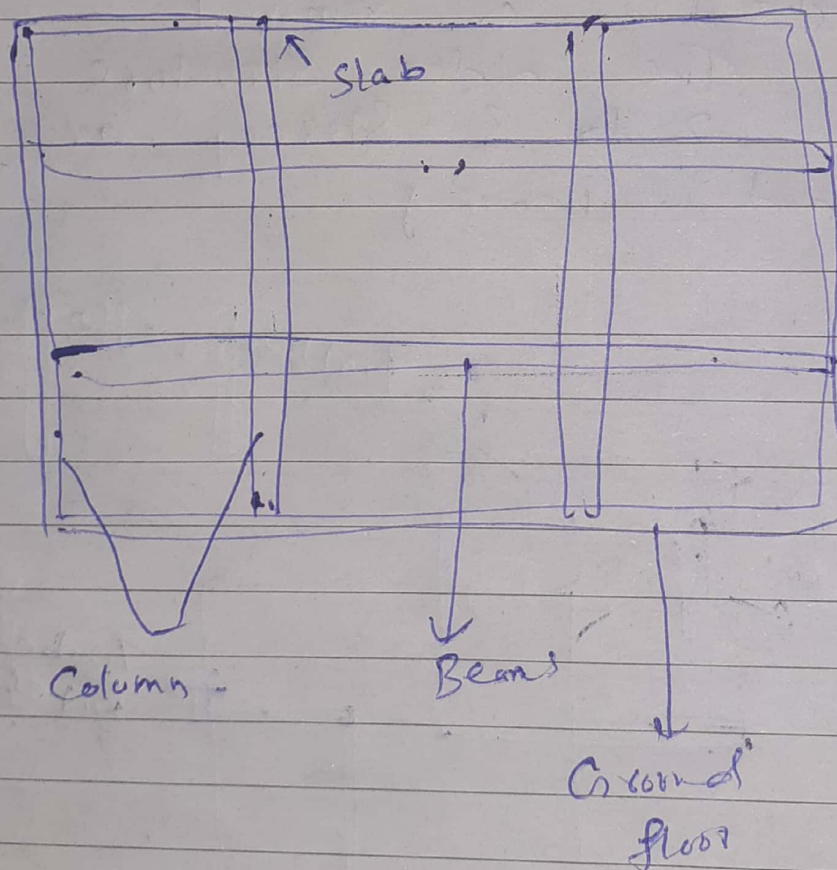 Slab
Column -
Beams
Ground
floor